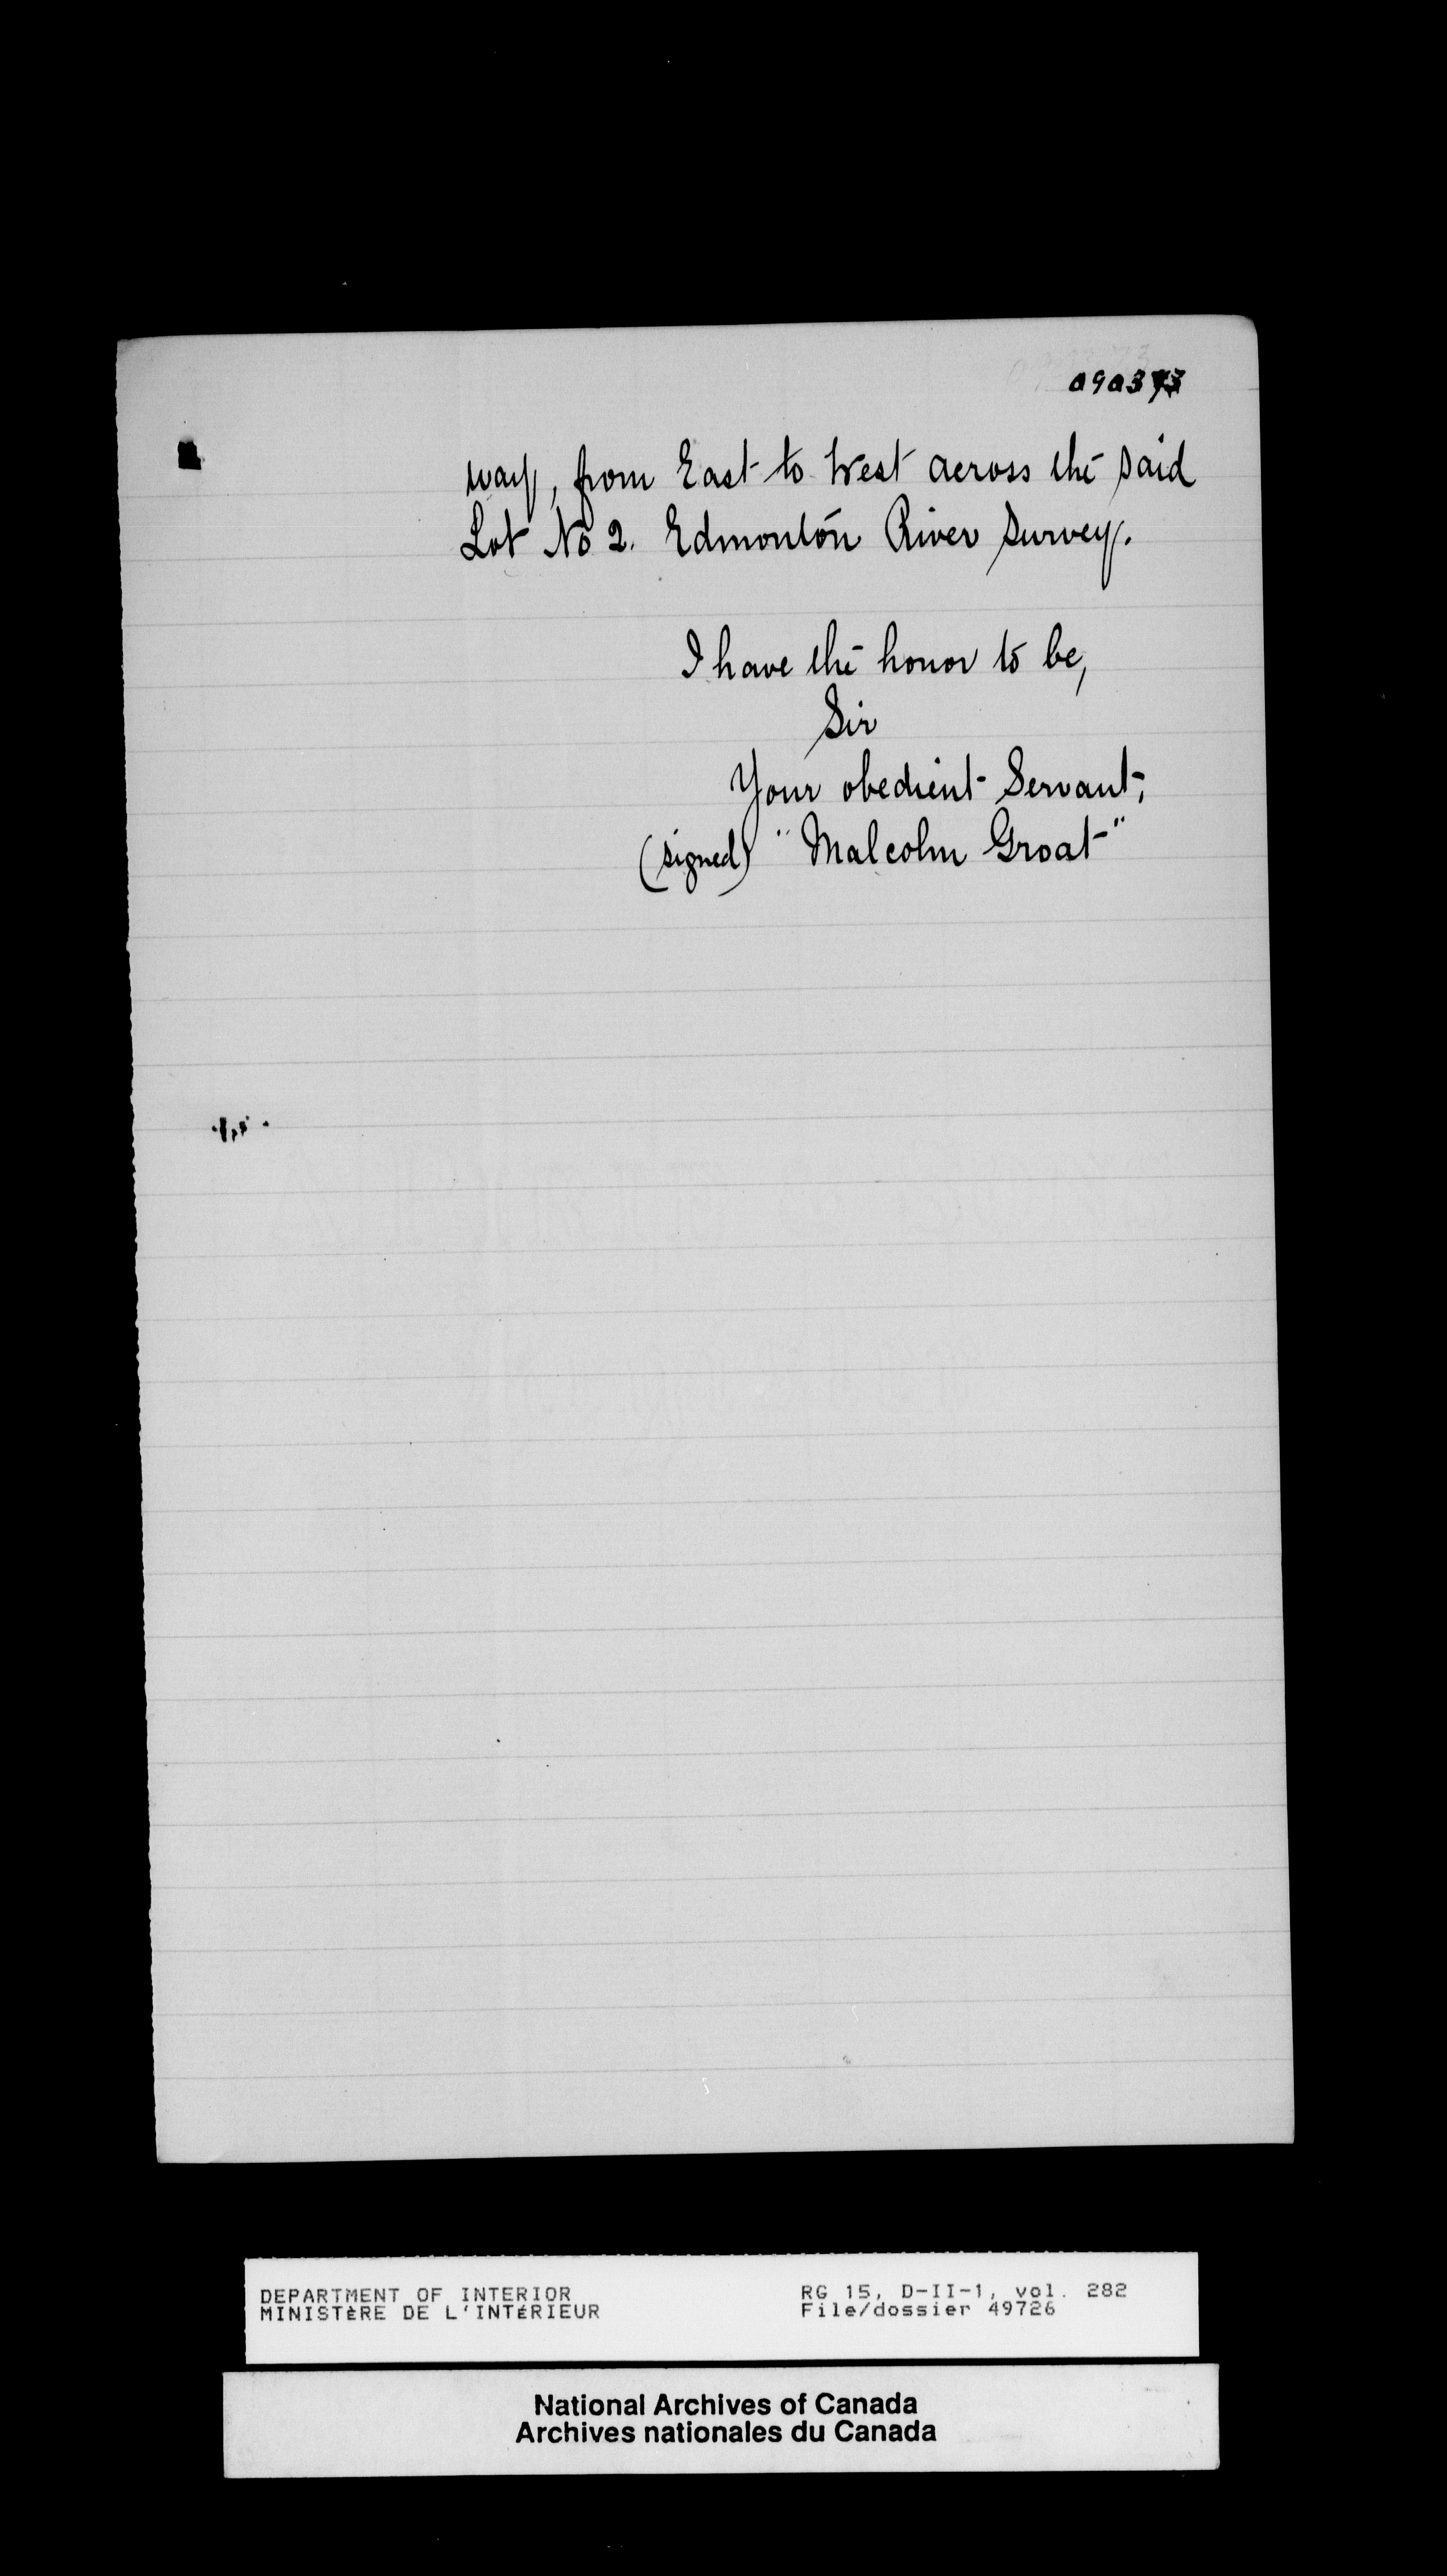 090373
way, from East to West across the said
Lot No 2. Edmonton River Survey.
I have the honor to be,
Sir
Your obedient Servant,
(signed) "Malcolm Groat"
DEPARTMENT OF INTERIOR
MINISTÈRE DE L'INTÉRIEUR
RG 15, D-II-1, vol. 282
File/dossier 49726
National Archives of Canada
Archives nationales du Canada